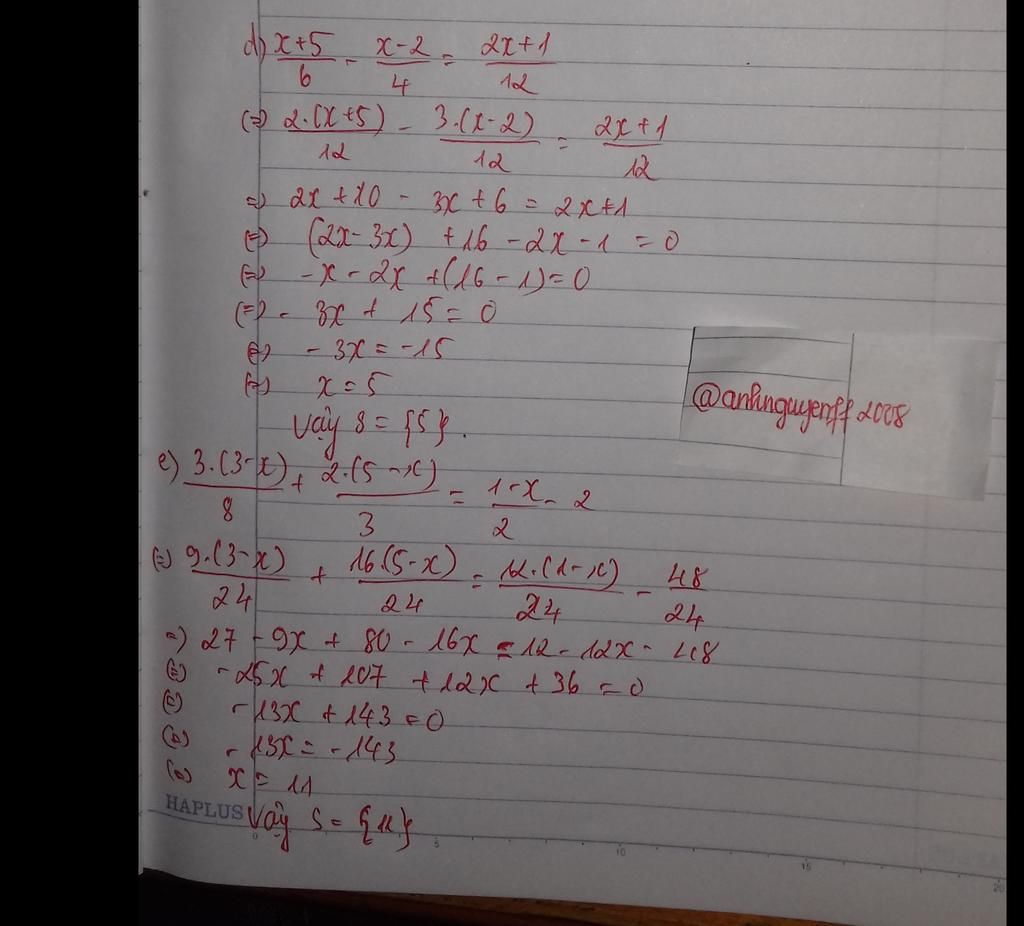 d) x+5/6 - x-2/4 = 2x+1/12
(=) 2.(x+5)/12 - 3.(x-2)/12 = 2x+1/12
=) 2x +10 - 3x + 6 = 2x+1
(=) (2x-3x) +16 -2x -1 = 0
(=) -x - 2x +(16-1)=0
(=) - 3x + 15 = 0
(=) - 3x = -15
(=) x = 5
Vậy S = {5}.
@anhnguyenff2008
e) 3.(3-x)/8 + 2.(5-x)/3 = 1-x/2 - 2
(=) 9.(3-x)/24 + 16.(5-x)/24 = 12.(1-x)/24 - 48/24
=) 27 - 9x + 80 - 16x = 12 - 12x - 48
(=) -25x + 107 + 12x + 36 = 0
(=) -13x + 143 = 0
(=) -13x = -143
(=) x = 11
HAPLUS Vậy S = {11}
0 5 10 15 20